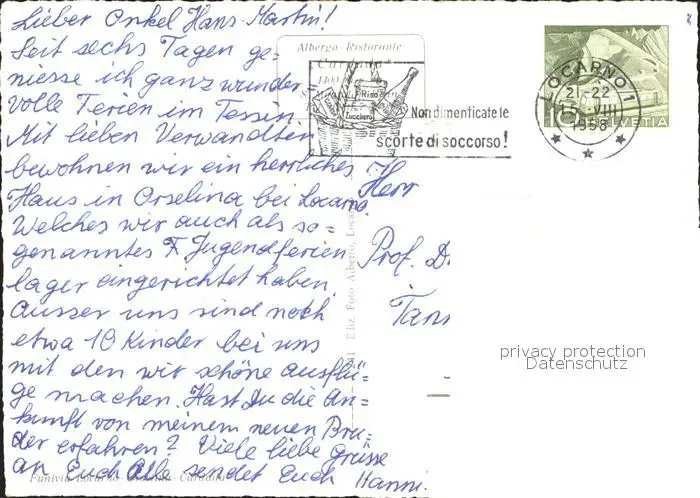 Lieber Onkel Hans-Martin!
Seit sechs Tagen ge-
niesse ich ganz wunder-
volle Ferien im Tessin.
Mit lieben Verwandten
bewohnen wir ein herrliches
Haus in Orselina bei Locarno.
Welches wir auch als so-
genanntes Jugendferien
lager eingerichtet haben.
Ausser uns sind noch
etwa 10 Kinder bei uns
mit den wir schöne Ausflü=
ge machen. Hast Du die An-
kunft von meinem neuen Bru-
der erfahren? Viele liebe Grüsse
an Euch Alle sendet Euch Hanni.
Funivia Locarno - Orselina - Cardada
Albergo - Ristorante
Cardada
1400
Riso
Zucchero
Non dimenticate le
scorte di soccorso!
LOCARNO 1
21-22
15.VIII
1958
10 HELVETIA
Ediz. Foto Alberto, Locarno
Herr
Prof. D
Tann
privacy protection
Datenschutz